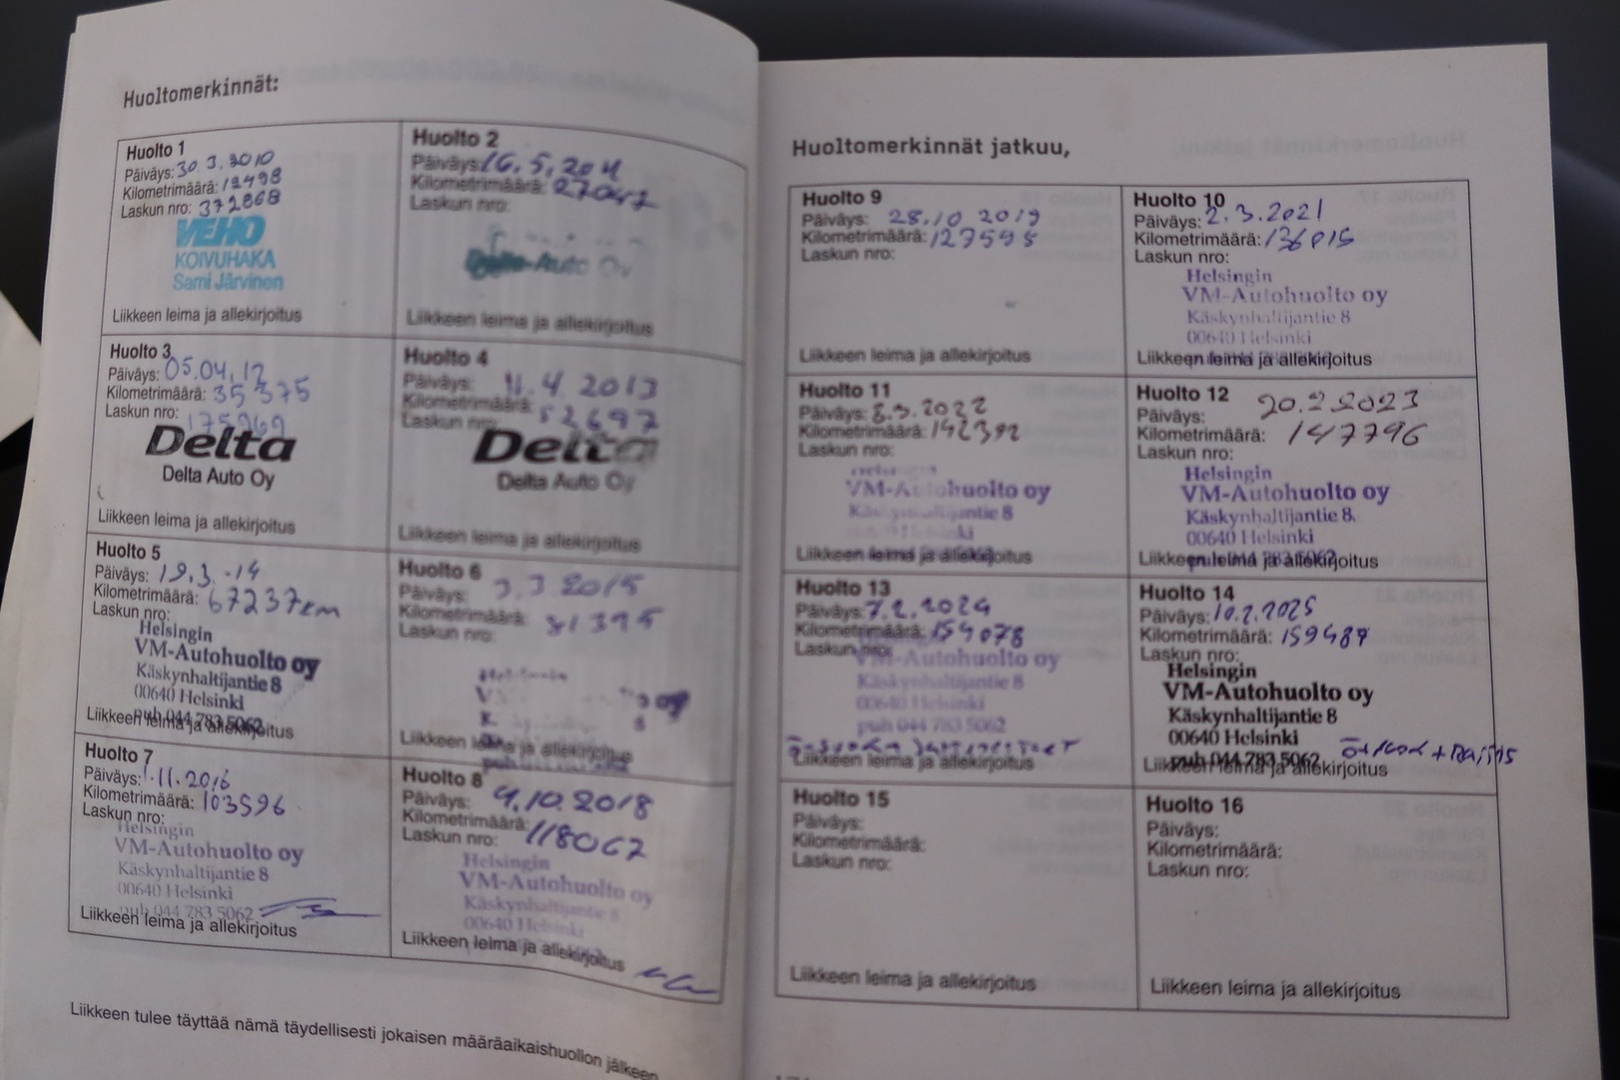 Huoltomerkinnät:
Huolto 1
Päiväys: 30.3.2010
Kilometrimäärä: 12498
Laskun nro: 372868
VEHO
KOIVUHAKA
Sami Järvinen
Liikkeen leima ja allekirjoitus
Huolto 2
Päiväys: 16.5.2011
Kilometrimäärä: 27047
Laskun nro:
Delta-Auto Oy
Liikkeen leima ja allekirjoitus
Huolto 3
Päiväys: 05.04.12
Kilometrimäärä: 35375
Laskun nro:
175969
Delta
Delta Auto Oy
Liikkeen leima ja allekirjoitus
Huolto 4
Päiväys: 11.4.2013
Kilometrimäärä: 52697
Laskun nro:
Delta
Delta Auto Oy
Liikkeen leima ja allekirjoitus
Huolto 5
Päiväys: 19.3.-14
Kilometrimäärä: 67237km
Laskun nro:
Helsingin
VM-Autohuolto oy
Käskynhaltijantie 8
00640 Helsinki
puh 044 783 5062
Liikkeen leima ja allekirjoitus
Huolto 6
Päiväys: 3.3.2015
Kilometrimäärä: 81395
Laskun nro:
Liikkeen leima ja allekirjoitus
Huolto 7
Päiväys: 1.11.2016
Kilometrimäärä: 103596
Laskun nro:
Helsingin
VM-Autohuolto oy
Käskynhaltijantie 8
00640 Helsinki
puh 044 783 5062
Liikkeen leima ja allekirjoitus
Huolto 8
Päiväys: 4.10.2018
Kilometrimäärä: 118067
Laskun nro:
Helsingin
VM-Autohuolto oy
Käskynhaltijantie 8
00640 Helsinki
Liikkeen leima ja allekirjoitus
Liikkeen tulee täyttää nämä täydellisesti jokaisen määräaikaishuollon jälkeen
Huoltomerkinnät jatkuu,
Huolto 9
Päiväys: 28.10.2019
Kilometrimäärä: 127595
Laskun nro:
Liikkeen leima ja allekirjoitus
Huolto 10
Päiväys: 2.3.2021
Kilometrimäärä: 136815
Laskun nro:
Helsingin
VM-Autohuolto oy
Käskynhaltijantie 8
00640 Helsinki
Liikkeen leima ja allekirjoitus
Huolto 11
Päiväys: 8.3.2022
Kilometrimäärä: 142392
Laskun nro:
VM-Autohuolto oy
Käskynhaltijantie 8
Liikkeen leima ja allekirjoitus
Huolto 12
Päiväys: 20.2.2023
Kilometrimäärä: 147796
Laskun nro:
Helsingin
VM-Autohuolto oy
Käskynhaltijantie 8
00640 Helsinki
puh 044 783 5062
Liikkeen leima ja allekirjoitus
Huolto 13
Päiväys: 7.2.2024
Kilometrimäärä: 154078
Laskun nro:
VM-Autohuolto oy
Käskynhaltijantie 8
00640 Helsinki
puh 044 783 5062
Liikkeen leima ja allekirjoitus
Huolto 14
Päiväys: 10.2.2025
Kilometrimäärä: 159487
Laskun nro:
Helsingin
VM-Autohuolto oy
Käskynhaltijantie 8
00640 Helsinki
puh 044 783 5062
Liikkeen leima ja allekirjoitus
Huolto 15
Päiväys:
Kilometrimäärä:
Laskun nro:
Liikkeen leima ja allekirjoitus
Huolto 16
Päiväys:
Kilometrimäärä:
Laskun nro:
Liikkeen leima ja allekirjoitus